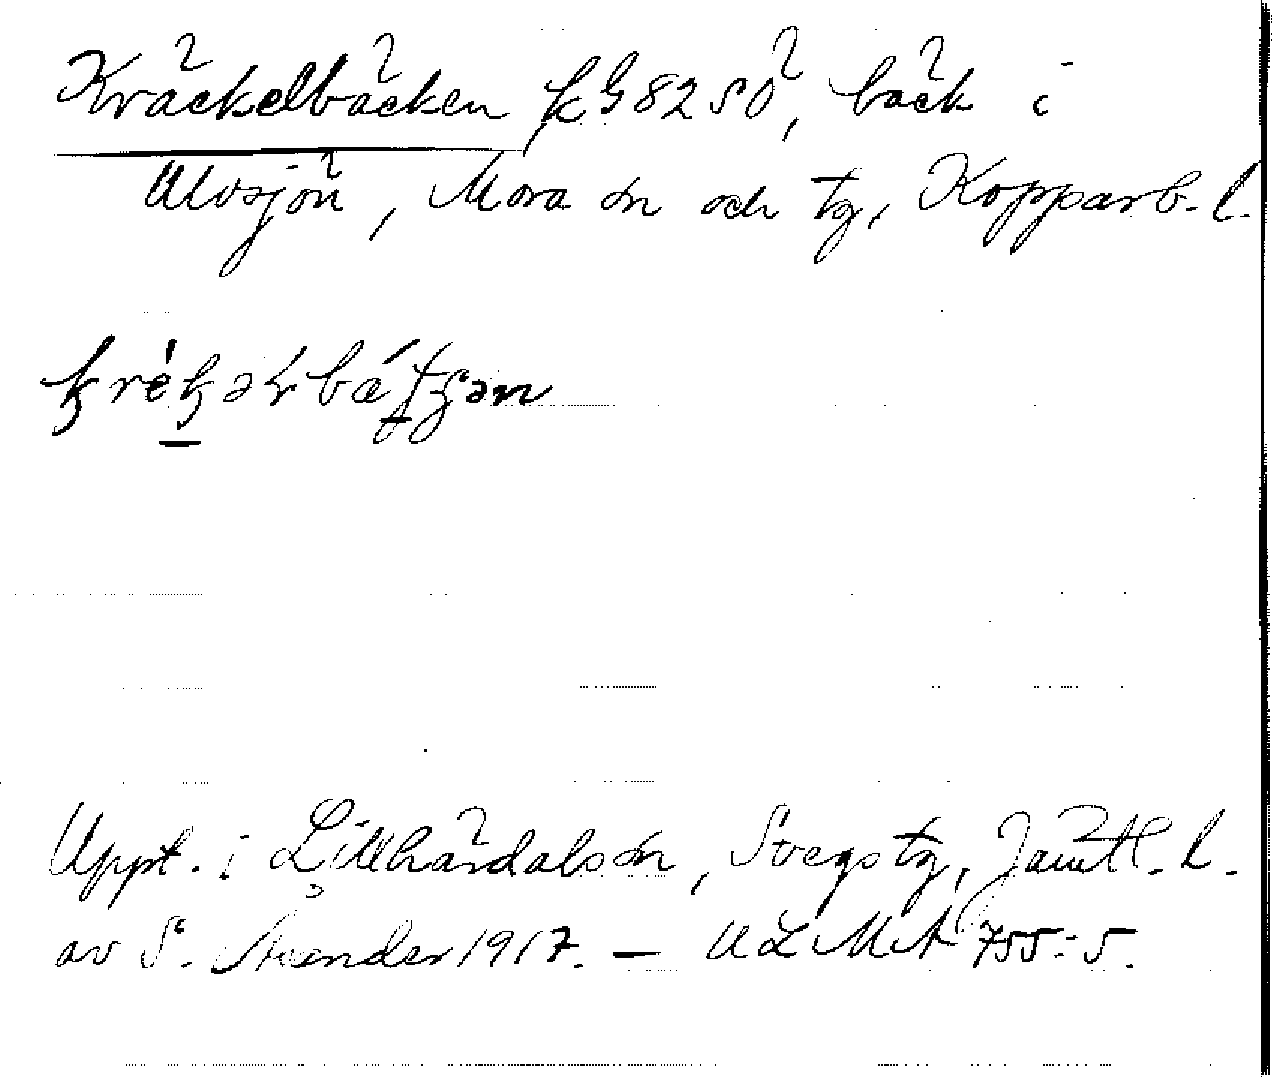 Kräckelbäcken kG 82 SÖ, bäck i
Ulvsjön, Mora sn och tg, Kopparb. l.
Uppt. i Lillhärdals sn, Svegs tg, Jämtl. l.
av S. 1917. — ULMA 755:5.